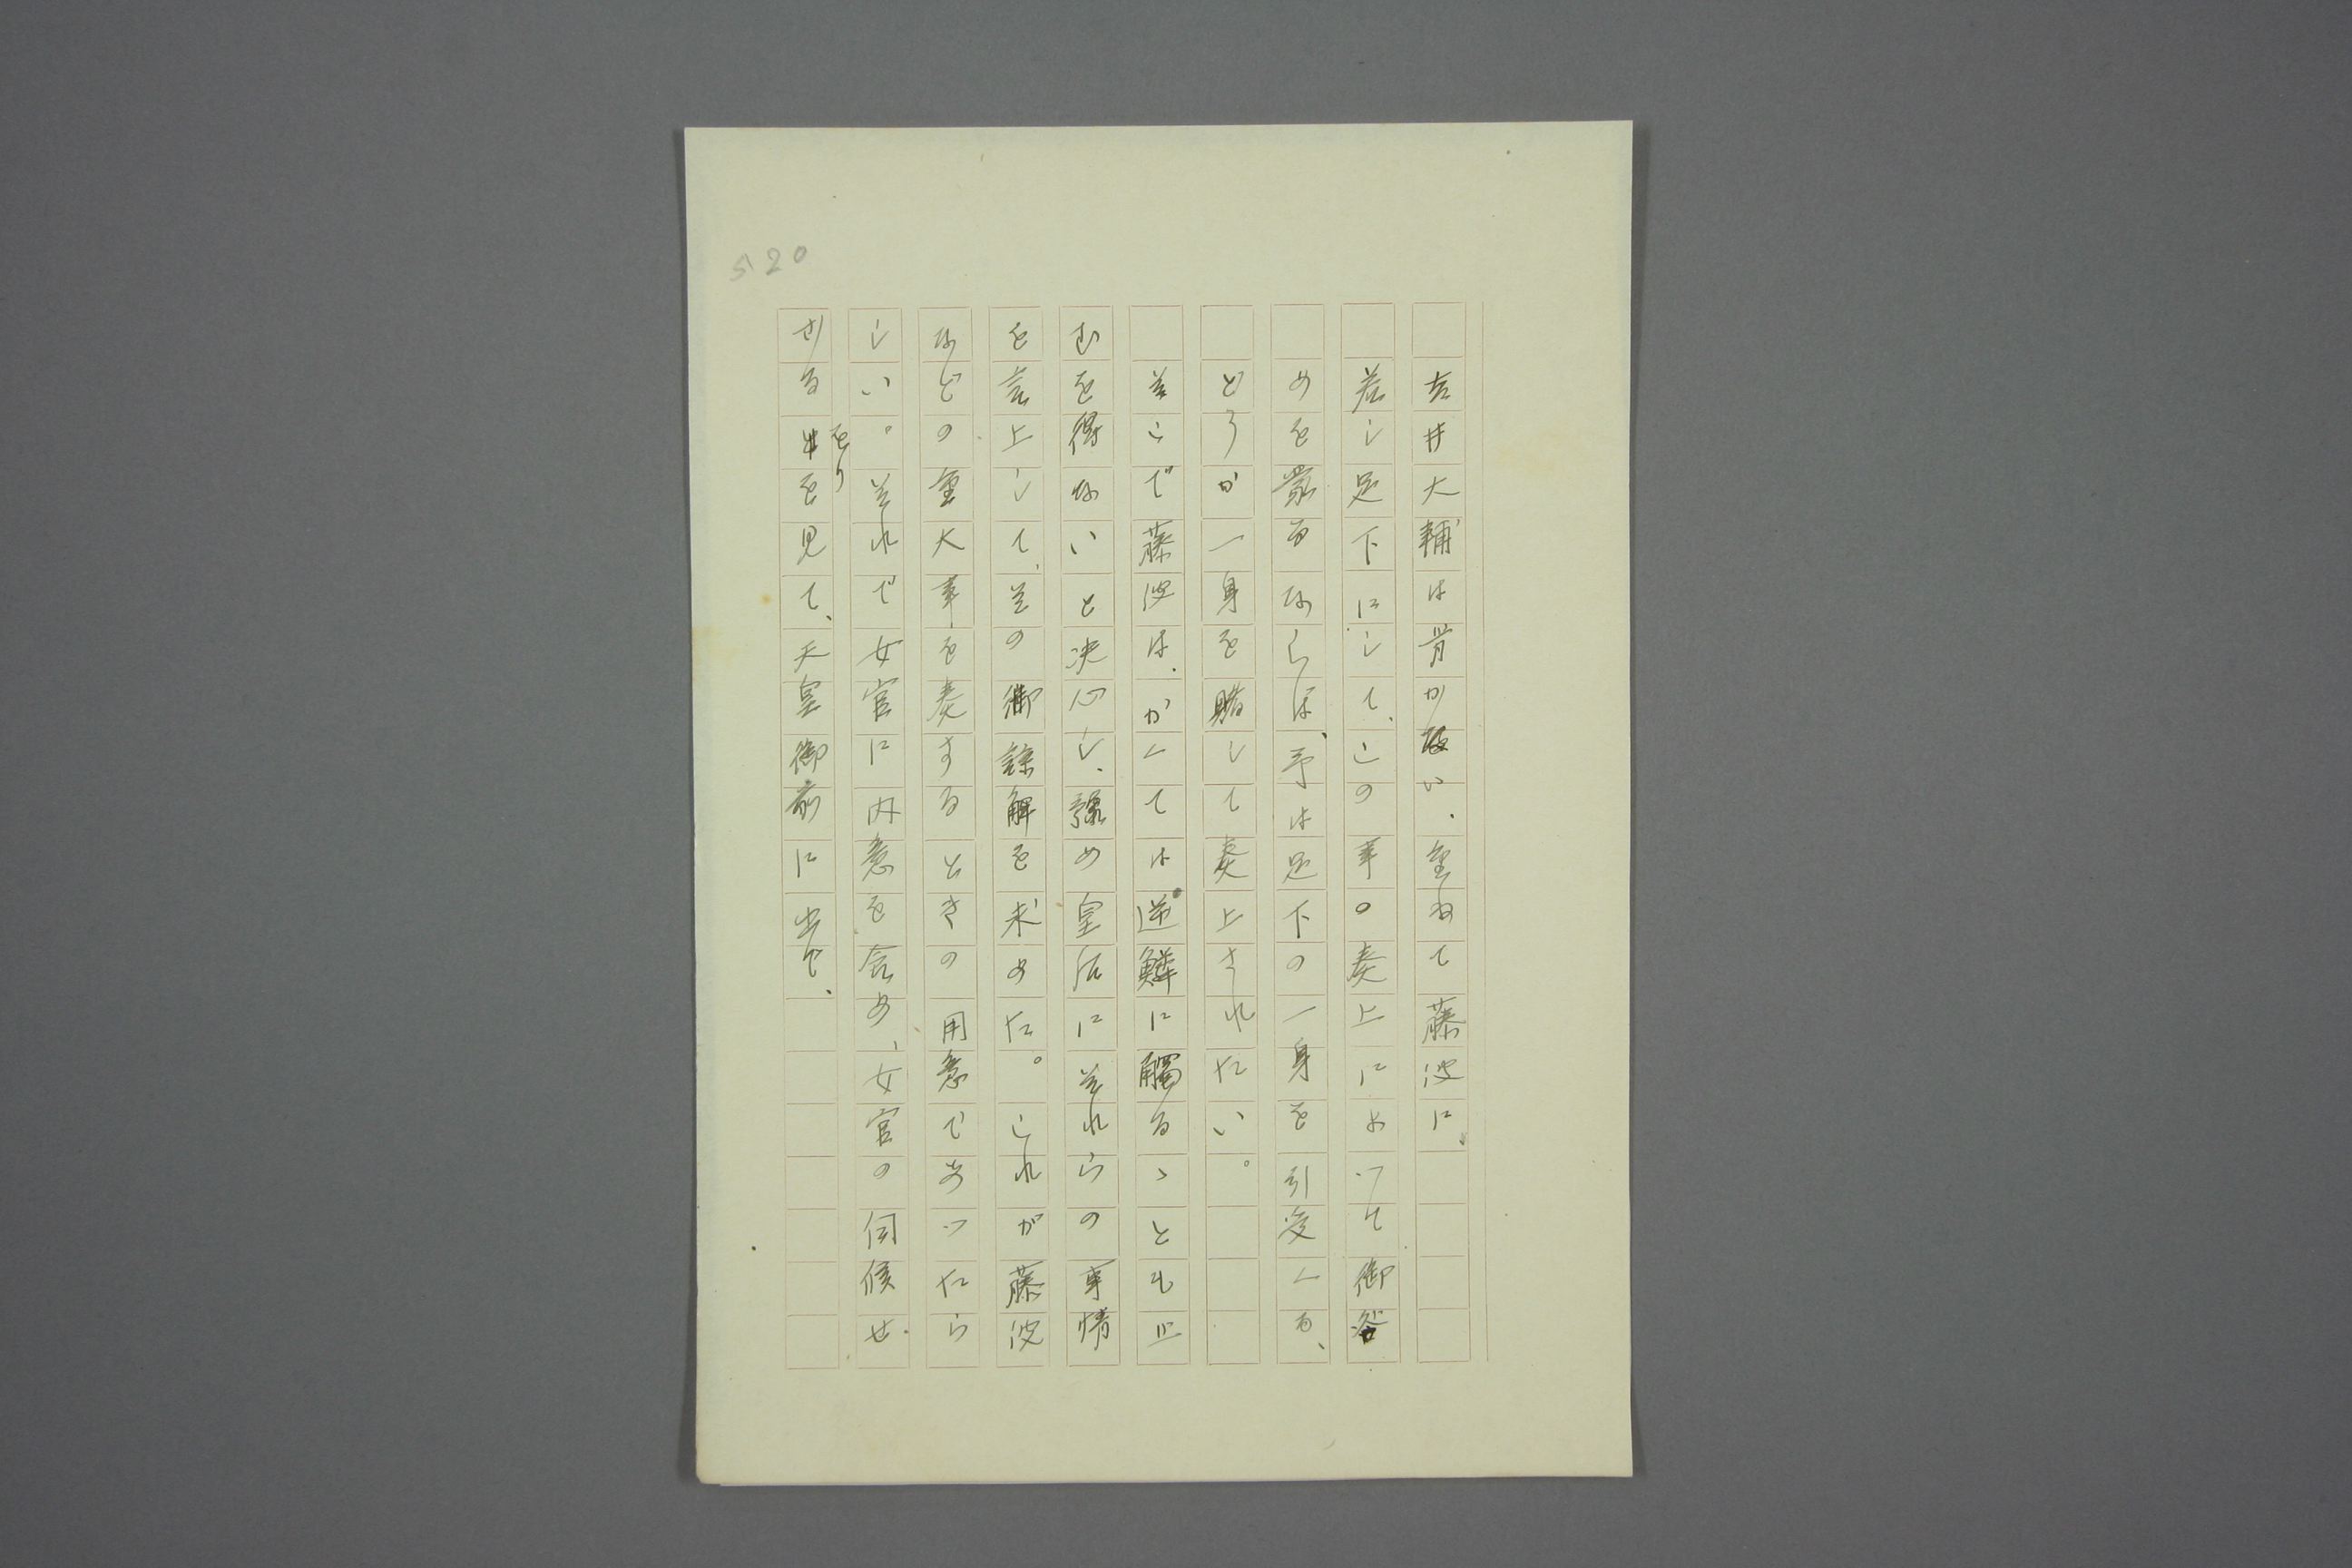 520
吉井大輔は肯かない．重ねて藤波に、
若し足下にして、この事の奏上によつて御咎
めを蒙るならば、予は足下の一身を引受くる、
どうか一身を賭して奏上されたい。
並こで藤波は、かくては逆鱗に觸るゝとも止
むを得ないと決心し、豫め皇后に並れらの事情
を言上して、並の御諒解を求めた。これが藤波
などの重大事を奏するときの用意であつたら
しい。並れで女官に内意を含め、女官の伺候せ
ざるをりを見て、天皇御前に出で、